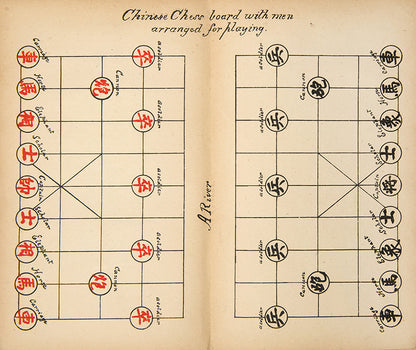 Chinese Chess board with men
arranged for playing.
Carriage
車
Horse
馬
Elephant
Scholar
士
Captain
帥
Scholar
士
Elephant
Horse
馬
Carriage
車
Cannon
Cannon
soldier
卒
soldier
卒
soldier
卒
soldier
卒
soldier
卒
A River
soldier
兵
soldier
兵
soldier
兵
soldier
兵
soldier
兵
Cannon
Cannon
Carriage
車
Horse
馬
Elephant
象
Scholar
士
Captain
Scholar
士
Elephant
象
Horse
馬
Carriage
車